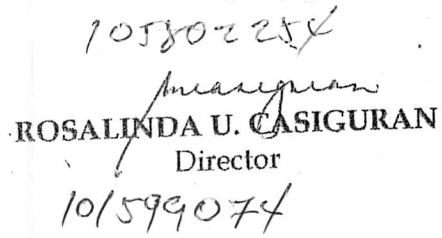 105802254
ROSALINDA U. CASIGURAN
Director
101599074